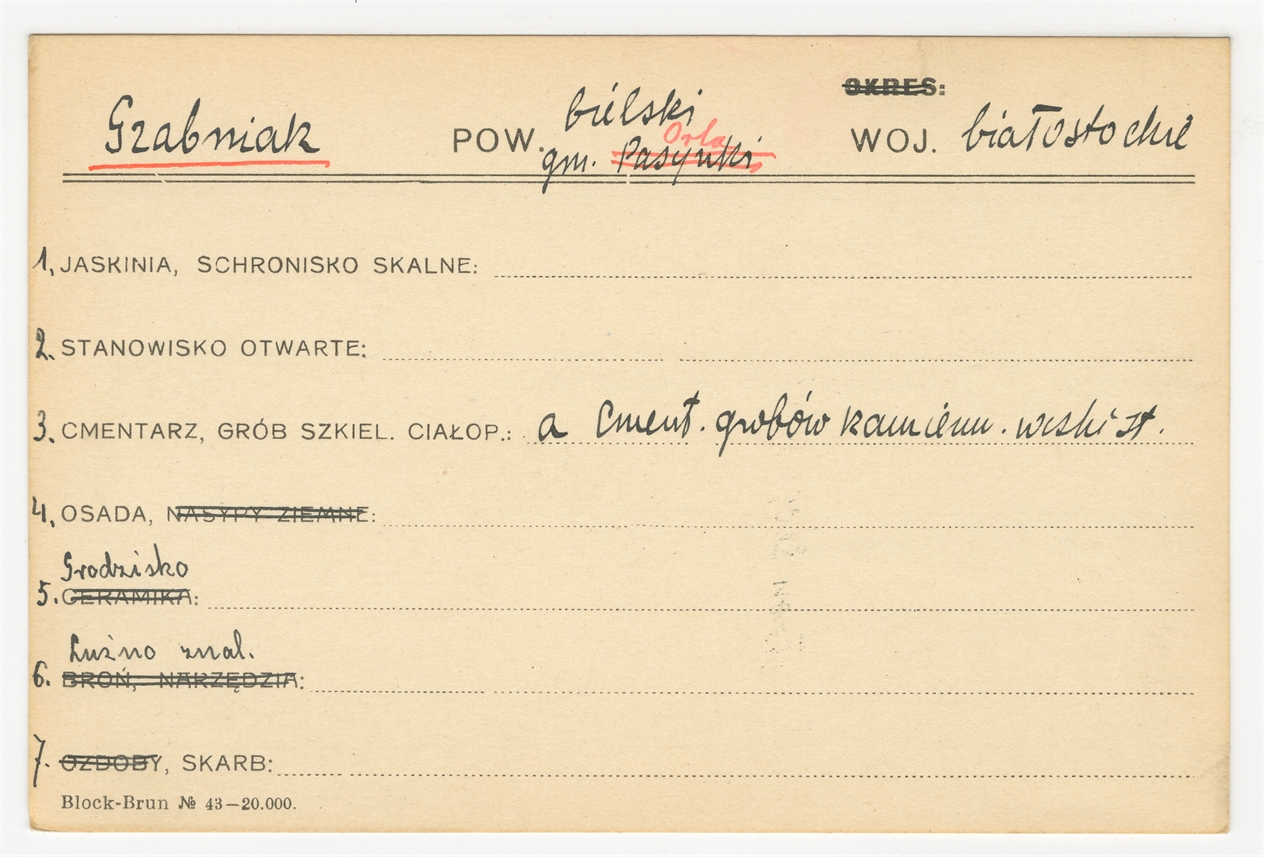 OKRES:
Grabniak POW. bielski WOJ. białostockie
gm. Pasynki Orla
1. JASKINIA, SCHRONISKO SKALNE:
2. STANOWISKO OTWARTE:
3. CMENTARZ, GRÓB SZKIEL. CIAŁOP.: a Cment. grobów kamienn. wcśńst.
4. OSADA, NASYPY ZIEMNE:
Grodzisko
5. CERAMIKA:
Luźno znal.
6. BROŃ, NARZĘDZIA:
7. OZDOBY, SKARB:
Block-Brun № 43—20.000.